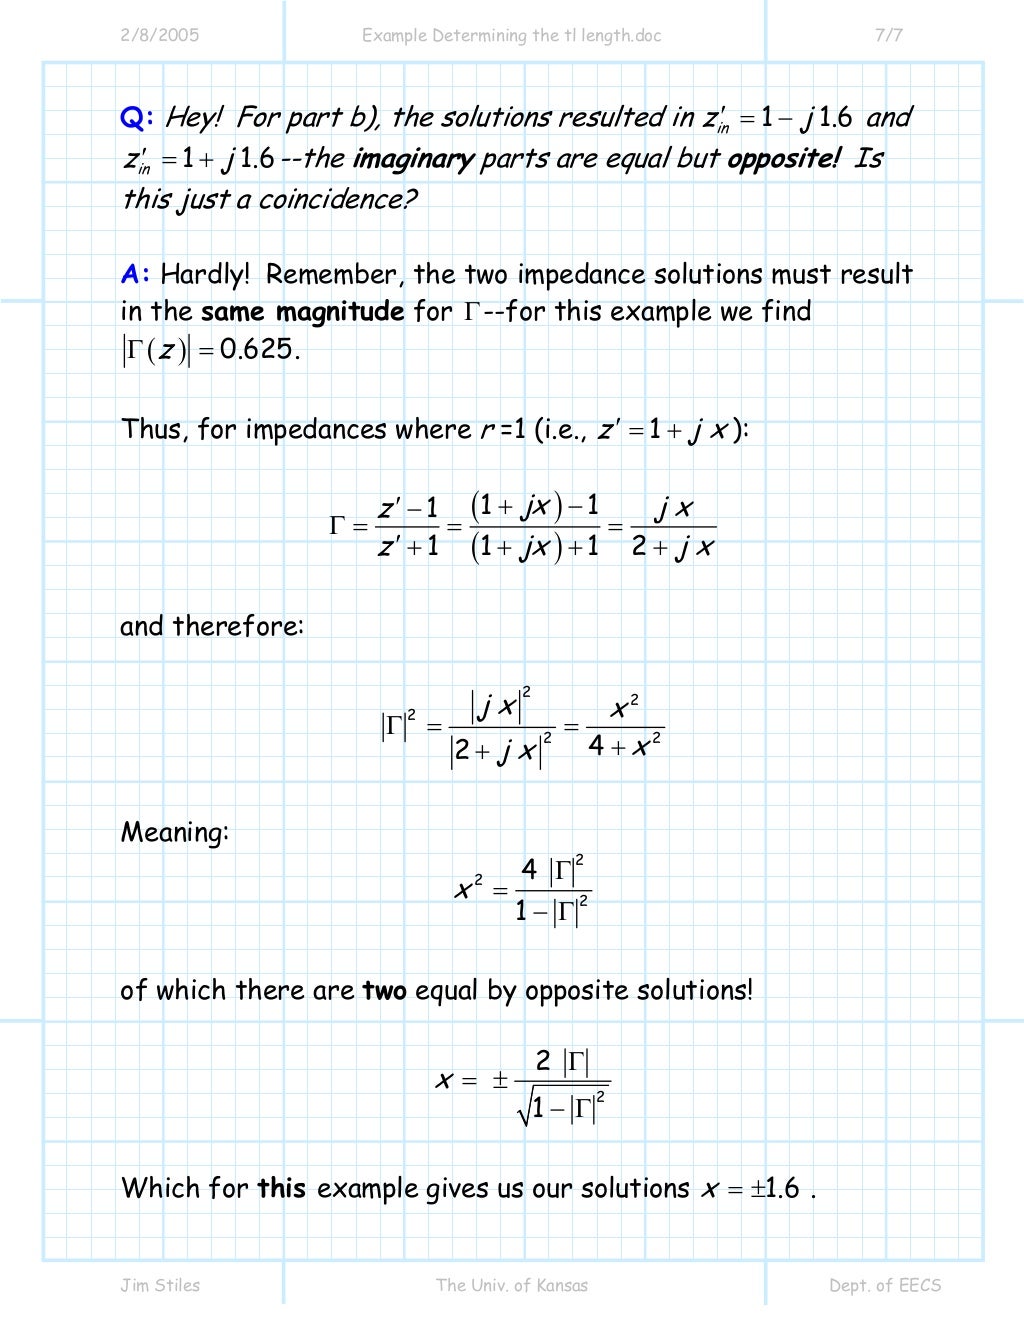 2/8/2005 Example Determining the tl length.doc 7/7
Q: Hey! For part b), the solutions resulted in z′in = 1 − j 1.6 and
z′in = 1 + j 1.6 --the imaginary parts are equal but opposite! Is
this just a coincidence?
A: Hardly! Remember, the two impedance solutions must result
in the same magnitude for Γ--for this example we find
|Γ(z)| = 0.625.
Thus, for impedances where r =1 (i.e., z′ = 1 + j x):
Γ = (z′ − 1)/(z′ + 1) = ((1 + jx) − 1)/((1 + jx) + 1) = j x/(2 + j x)
and therefore:
|Γ|² = |j x|²/|2 + j x|² = x²/(4 + x²)
Meaning:
x² = 4 |Γ|²/(1 − |Γ|²)
of which there are two equal by opposite solutions!
x = ± 2 |Γ|/√(1 − |Γ|²)
Which for this example gives us our solutions x = ±1.6 .
Jim Stiles The Univ. of Kansas Dept. of EECS